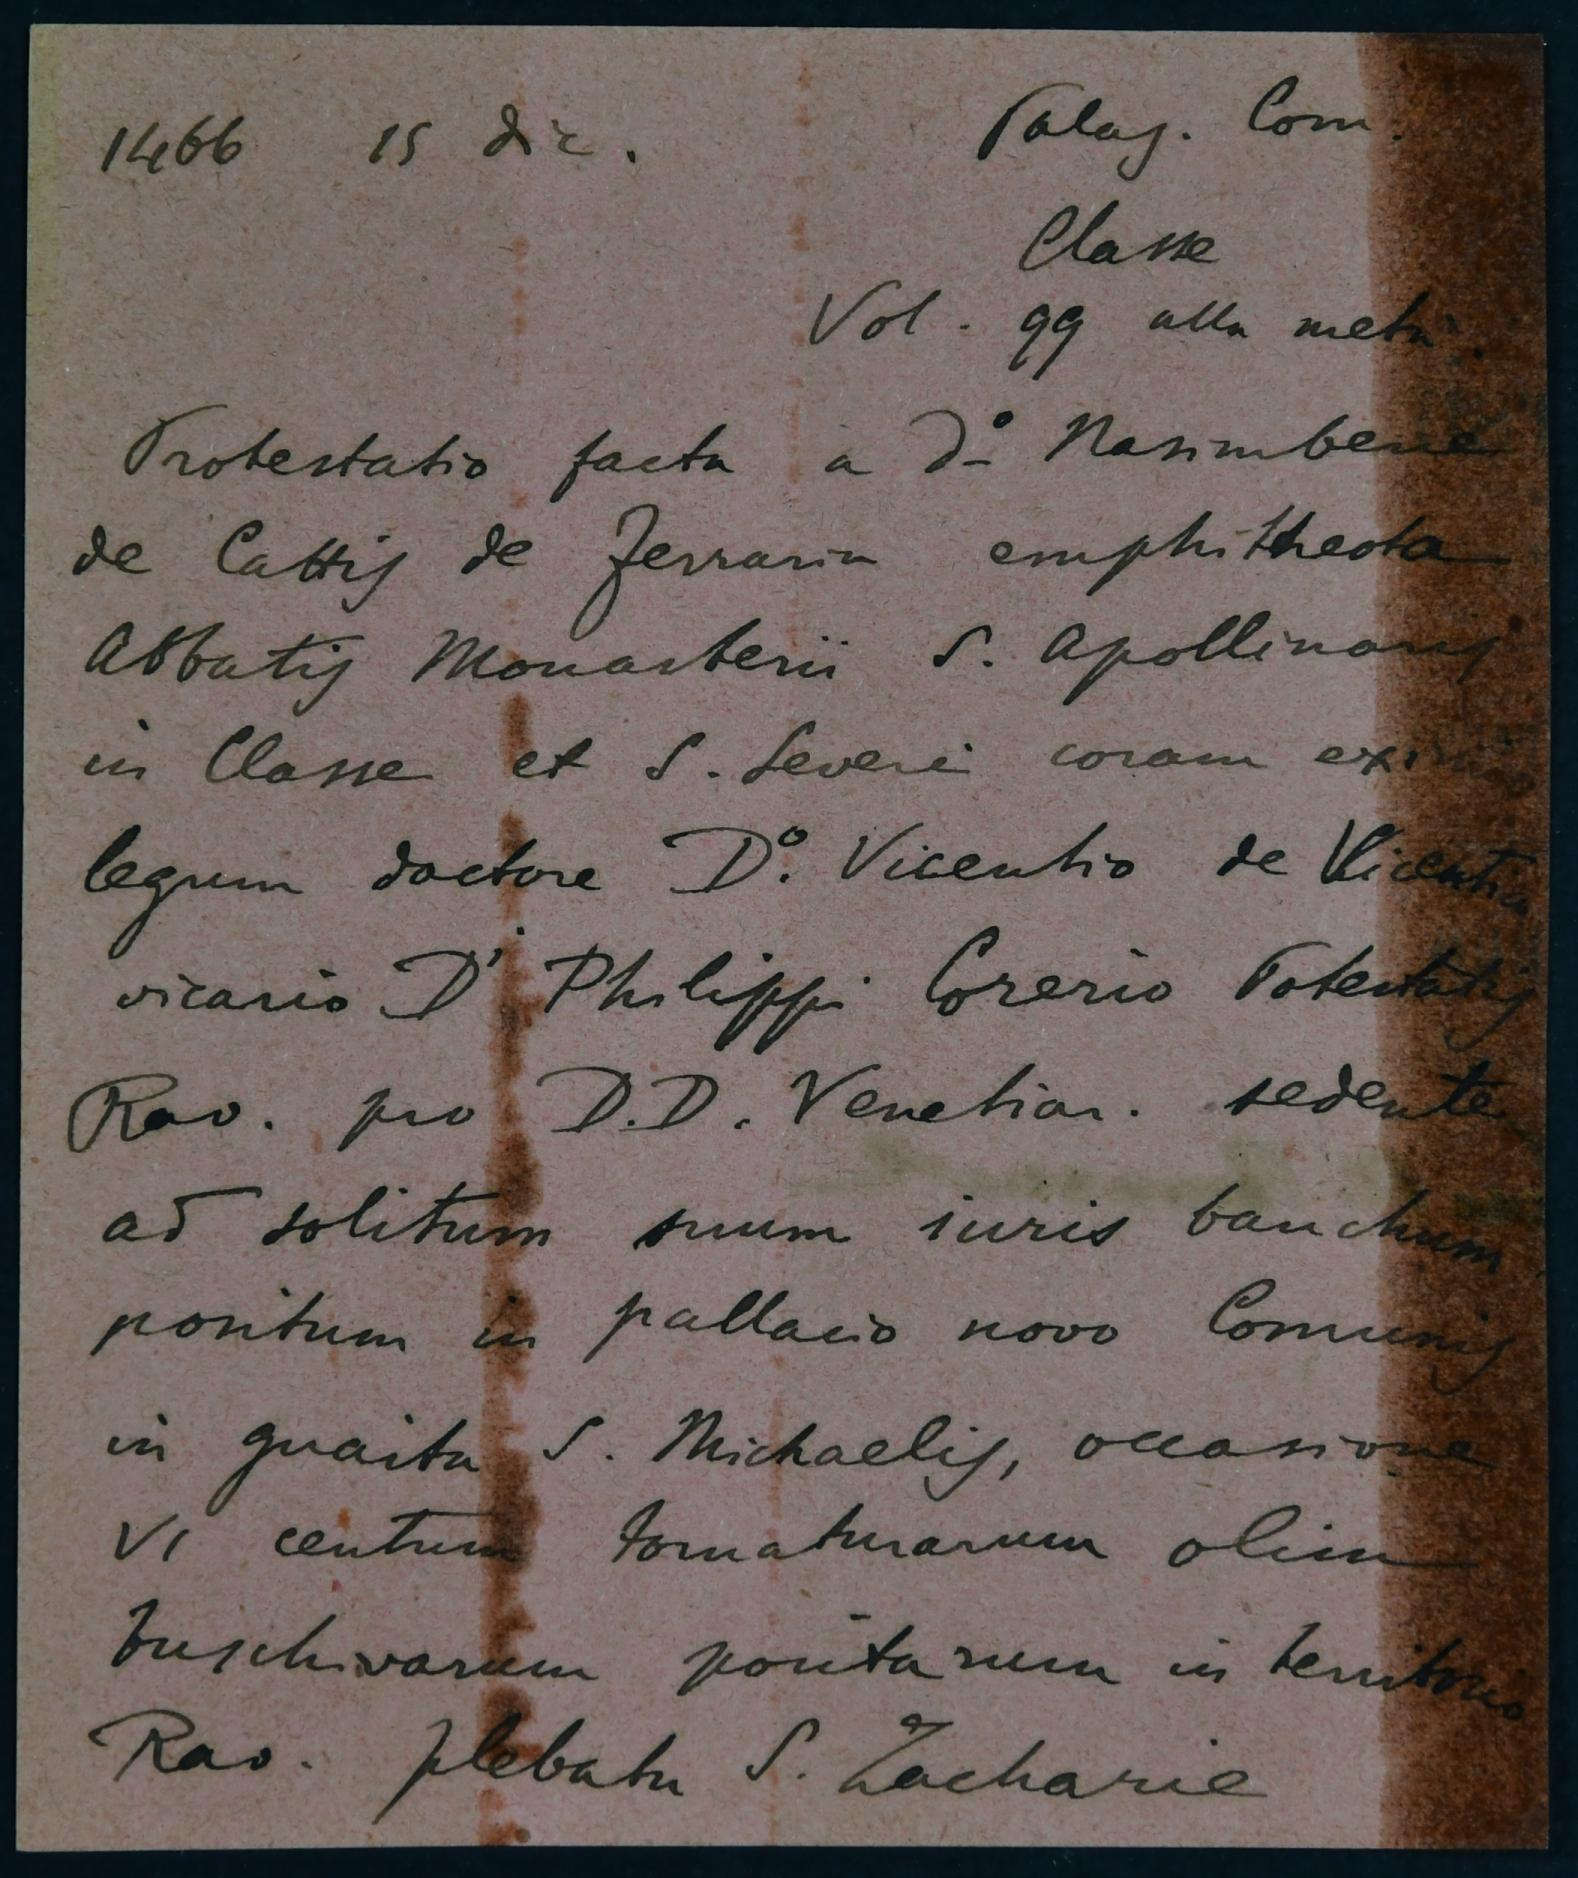 1466 15 dic. Palaz. Com.
Classe
Vol. 99 alla metà.
Protestatio facta a D.º Nasimbene
de Cattis de Ferraria emphitheota
Abbatis Monasterii S. Apollinaris
in Classe et S. Severi coram eximio
legum doctore Dº. Vicentio de Vicentia
vicario Dⁱ Philippi Corerio Potestatis
Rav. pro D.D. Venetiar. sedente
ad solitum suum iuris banchum
positum in pallacio novo Comunis
in guaita S. Michaelis, occasione
VI centum tornaturarum olim
buschivarum positarum in territorio
Rav. plebatu S. Zacharie